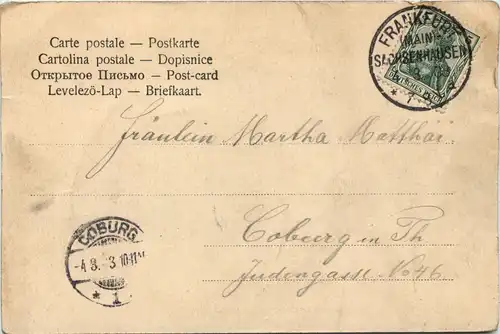 Carte postale — Postkarte
Cartolina postale — Dopisnice
Открытое Письмо — Post-card
Levelező-Lap — Briefkaart.
FRANKFURT
(MAIN)
SACHSENHAUSEN
* 1
Fräulein Martha Matthäi
COBURG
-4 8. 3. 10-11V
* 1
Coburg in Th.
Judengasse No 46